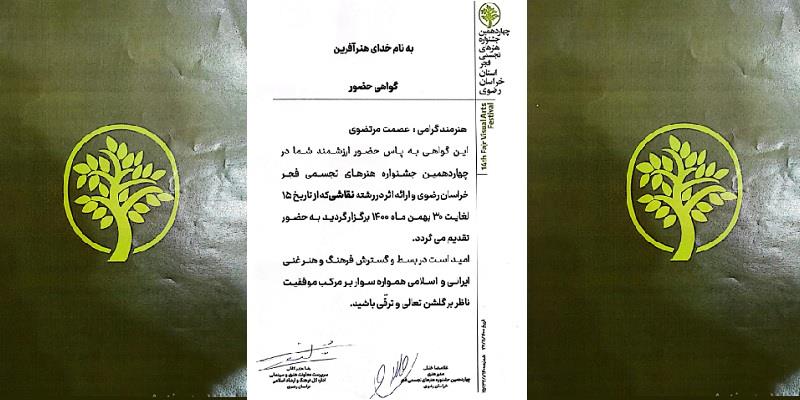 چهاردهمین
جشنواره
هنرهای
تجسمی
فجر
استان
خراسان
رضوی
14th Fajr Visual Arts
Festival
به نام خدای هنرآفرین
گواهی حضور
هنرمند گرامی ؛ عصمت مرتضوی
این گواهی به پاس حضور ارزشمند شما در
چهاردهمین جشنواره هنرهای تجسمی فجر
خراسان رضوی و ارائه اثر در رشته نقاشی که از تاریخ ۱۵
لغایت ۳۰ بهمن ماه ۱۴۰۰ برگزار گردید به حضور
تقدیم می گردد.
امید است در بسط و گسترش فرهنگ و هنر غنی
ایرانی و اسلامی همواره سوار بر مرکب موفقیت
ناظر بر گلشن تعالی و ترقّی باشید.
مدیر هنری
چهاردهمین جشنواره هنرهای تجسمی فجر
خراسان رضوی
سرپرست معاونت هنری و سینمایی
اداره کل فرهنگ و ارشاد اسلامی
خراسان رضوی